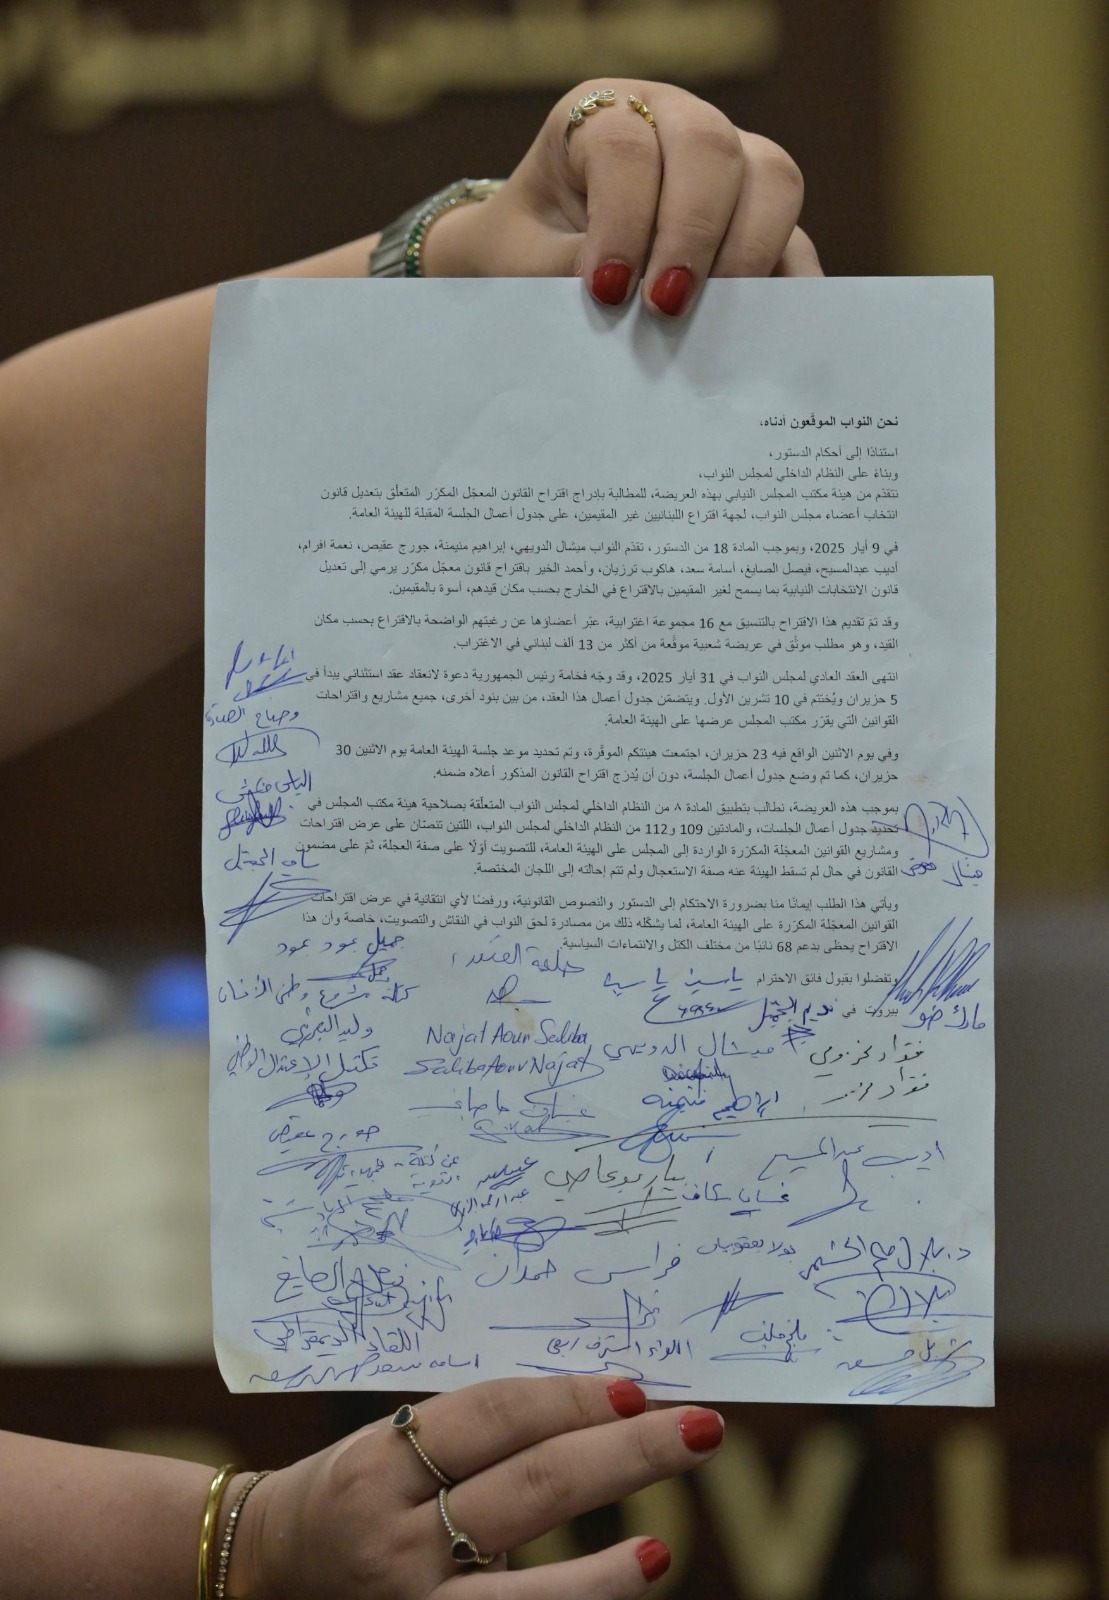 نحن النواب الموقّعون أدناه،
استنادًا إلى أحكام الدستور،
وبناءً على النظام الداخلي لمجلس النواب،
نتقدّم من هيئة مكتب المجلس النيابي بهذه العريضة، للمطالبة بإدراج اقتراح القانون المعجّل المكرّر المتعلّق بتعديل قانون
انتخاب أعضاء مجلس النواب، لجهة اقتراع اللبنانيين غير المقيمين، على جدول أعمال الجلسة المقبلة للهيئة العامة.
في 9 أيار 2025، وبموجب المادة 18 من الدستور، تقدّم النواب ميشال الدويهي، إبراهيم منيمنة، جورج عقيص، نعمة افرام،
أديب عبدالمسيح، فيصل الصايغ، أسامة سعد، هاكوب ترزيان، وأحمد الخير باقتراح قانون معجّل مكرّر يرمي إلى تعديل
قانون الانتخابات النيابية بما يسمح لغير المقيمين بالاقتراع في الخارج بحسب مكان قيدهم، أسوة بالمقيمين.
وقد تمّ تقديم هذا الاقتراح بالتنسيق مع 16 مجموعة اغترابية، عبّر أعضاؤها عن رغبتهم الواضحة بالاقتراع بحسب مكان
القيد، وهو مطلب موثّق في عريضة شعبية موقّعة من أكثر من 13 ألف لبناني في الاغتراب.
انتهى العقد العادي لمجلس النواب في 31 أيار 2025، وقد وجّه فخامة رئيس الجمهورية دعوة لانعقاد عقد استثنائي يبدأ في
5 حزيران ويُختتم في 10 تشرين الأول. ويتضمّن جدول أعمال هذا العقد، من بين بنود أخرى، جميع مشاريع واقتراحات
القوانين التي يقرّر مكتب المجلس عرضها على الهيئة العامة.
وفي يوم الاثنين الواقع فيه 23 حزيران، اجتمعت هيئتكم الموقّرة، وتم تحديد موعد جلسة الهيئة العامة يوم الاثنين 30
حزيران، كما تم وضع جدول أعمال الجلسة، دون أن يُدرَج اقتراح القانون المذكور أعلاه ضمنه.
بموجب هذه العريضة، نطالب بتطبيق المادة ٨ من النظام الداخلي لمجلس النواب المتعلّقة بصلاحية هيئة مكتب المجلس في
تحديد جدول أعمال الجلسات، والمادتين 109 و112 من النظام الداخلي لمجلس النواب، اللتين تنصّان على عرض اقتراحات
ومشاريع القوانين المعجّلة المكرّرة الواردة إلى المجلس على الهيئة العامة، للتصويت أوّلًا على صفة العجلة، ثمّ على مضمون
القانون في حال لم تسقط الهيئة عنه صفة الاستعجال ولم تتم إحالته إلى اللجان المختصة.
ويأتي هذا الطلب إيمانًا منا بضرورة الاحتكام إلى الدستور والنصوص القانونية، ورفضًا لأي انتقائية في عرض اقتراحات
القوانين المعجّلة المكرّرة على الهيئة العامة، لما يشكّله ذلك من مصادرة لحق النواب في النقاش والتصويت، خاصة وأن هذا
الاقتراح يحظى بدعم 68 نائبًا من مختلف الكتل والانتماءات السياسية.
وتفضلوا بقبول فائق الاحترام
بيروت في
ياسين ياسين
نديم الجميل
مارك ضو
ميشال معوض
ميشال الدويهي
فؤاد مخزومي
ابراهيم منيمنة
اديب عبد المسيح
غسان سكاف
بولا يعقوبيان
فراس حمدان
ملحم خلف
اللواء اشرف ريفي
Najat Aoun Saliba
Saliba Aoun Najat
الياس حنكش
سامي الجميّل
جميل عبود عبود
كتلة مشروع وطن الانسان
وليد البعريني
تكتل الاعتدال الوطني
جورج عقيص
فيصل الصايغ
اللقاء الديمقراطي
اسامه سعد